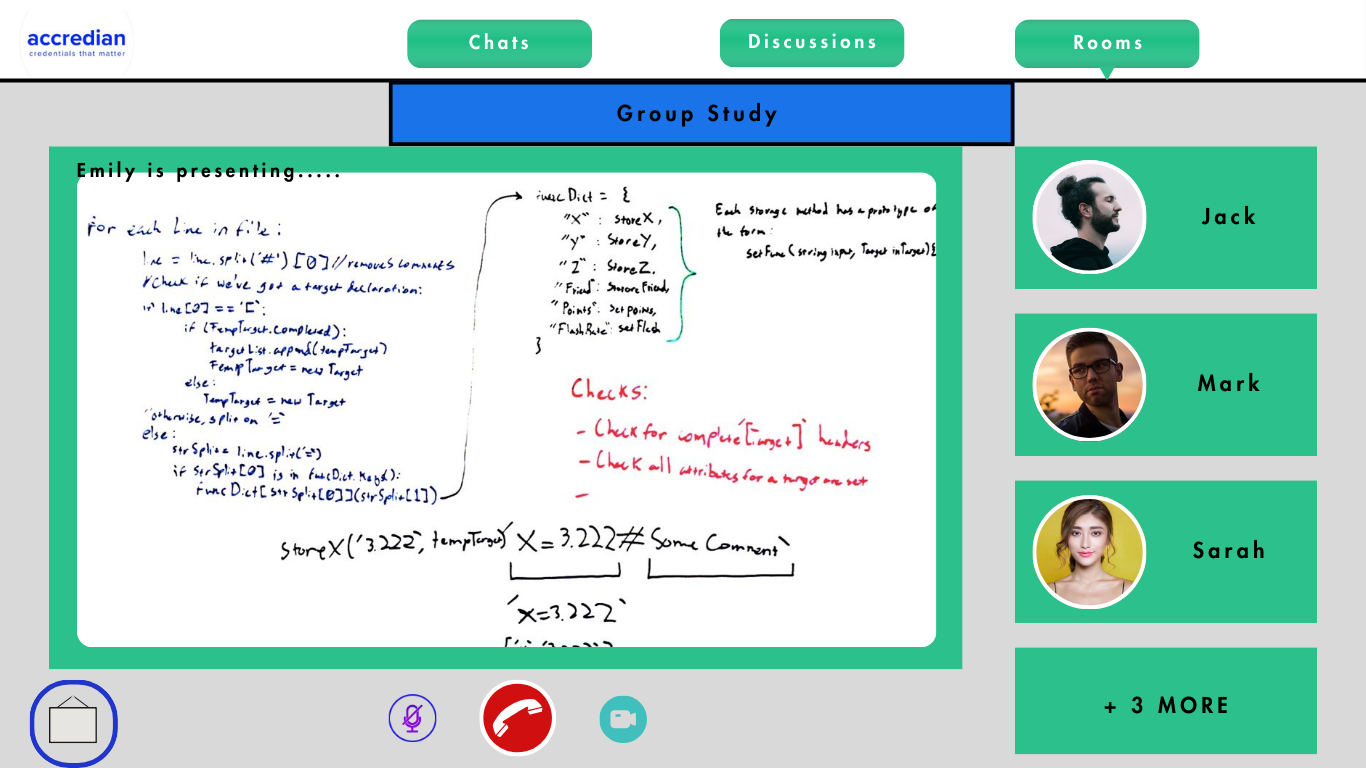 accredian
credentials that matter
Chats
Discussions
Rooms
Group Study
Emily is presenting.....
For each Line in file:
line = line.split('#')[0] //removes comments
//Check if we've got a target declaration:
if line[0] == '[':
if (TempTarget.completed):
targetList.append(tempTarget)
TempTarget = new Target
else:
TempTarget = new Target
"otherwise, split on '='
else:
strSplit = line.split('=')
if strSplit[0] is in funcDict.keys():
funcDict[strSplit[0]](strSplit[1])
funcDict = {
"X" : storeX,
"y" : StoreY,
"Z" : StoreZ,
"Friend" :
"Points" : setpoints,
"FlashRate" : setFlash
}
Each storage method has a prototype of
the form:
setFunc(string input, Target inTarget){
Checks:
- Check for complete '[Target]' headers
- Check all attributes for a target are set
-
storeX('3.222', tempTarget) 'X=3.222# Some Comment'
'x=3.222'
Jack
Mark
Sarah
+ 3 MORE